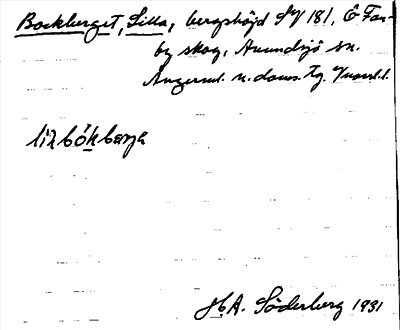 Bockberget, Lilla, bergshöjd S 181, Ö Far-
by skog, Anundsjö sn.
Ångerml. n. doms. tg.
lìlbókberje
H.A. Söderberg 1931